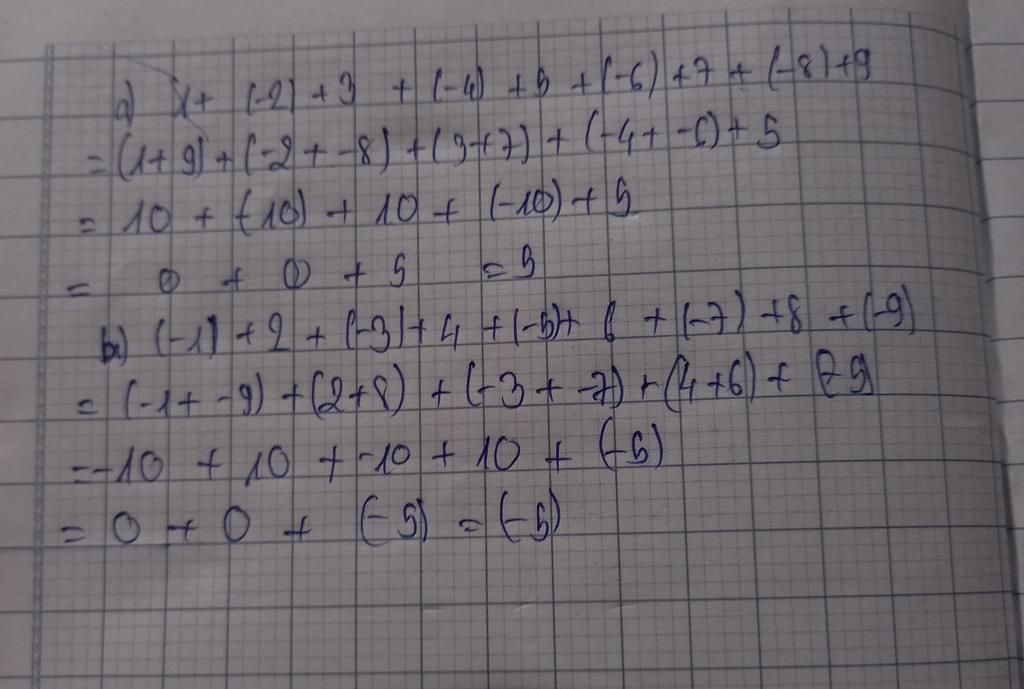 a) 1 + (-2) + 3 + (-4) + 5 + (-6) + 7 + (-8) + 9
= (1 + 9) + (-2 + -8) + (3 + 7) + (-4 + -6) + 5
= 10 + (-10) + 10 + (-10) + 5
= 0 + 0 + 5 = 5
b) (-1) + 2 + (-3) + 4 + (-5) + 6 + (-7) + 8 + (-9)
= (-1 + -9) + (2 + 8) + (-3 + -7) + (4 + 6) + (-5)
= -10 + 10 + -10 + 10 + (-5)
= 0 + 0 + (-5) = (-5)